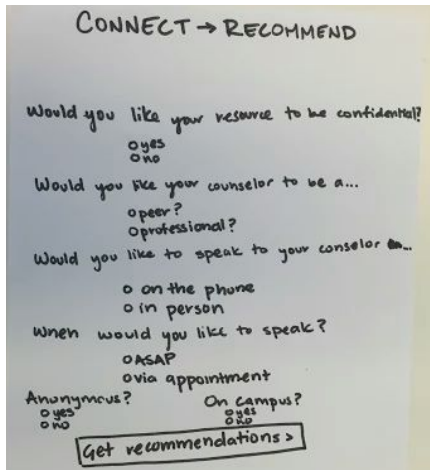 CONNECT → RECOMMEND
Would you like your resource to be confidential?
o yes
o no
Would you like your counselor to be a...
o peer?
o professional?
Would you like to speak to your conselor ...
o on the phone
o in person
When would you like to speak?
o ASAP
o via appointment
Anonymous? On campus?
o yes o yes
o no o no
Get recommendations >